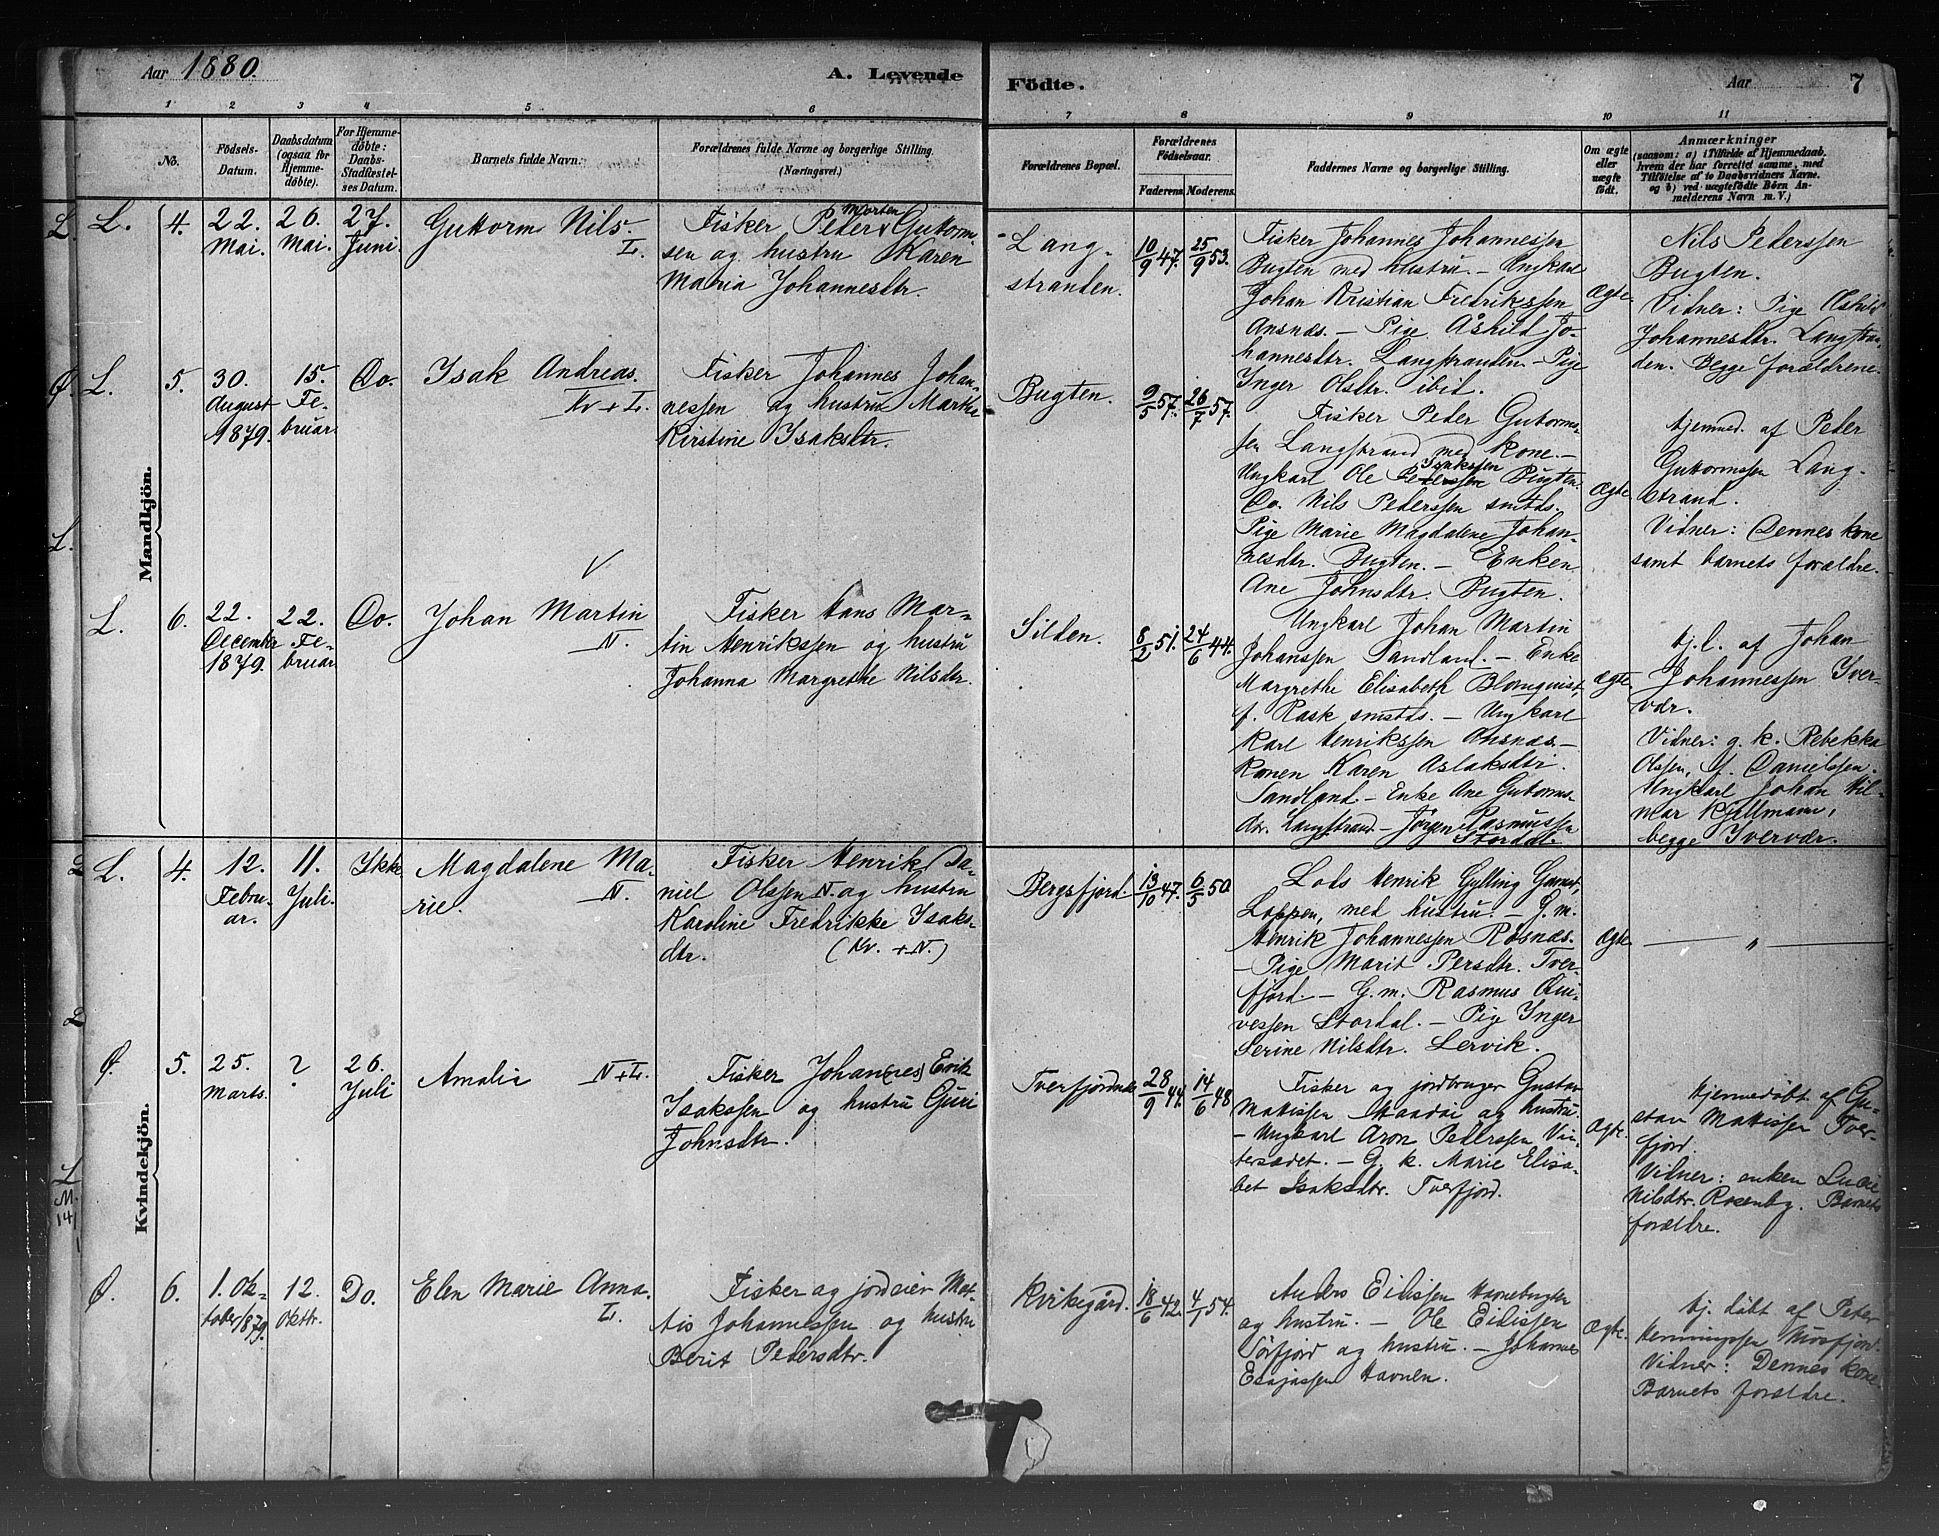 Aar 1880.
A. Levende
Födte.
Aar
7
1 2 3 4 5 6 7 8 9 10 11
No.
Födsels-
Datum.
Daabsdatum
(ogsaa for
Hjemme-
döbte).
For Hjemme-
döbte:
Daabs-
Stadfæstel-
ses Datum.
Barnets fulde Navn.
Forældrenes fulde Navne og borgerlige Stilling.
(Næringsvei.)
Forældrenes Bopæl.
Forældrenes
Födselsaar.
Faderens.
Moderens.
Faddernes Navne og borgerlige Stilling.
Om ægte
eller
uægte
födt.
Anmærkninger
(saasom: a) i Tilfælde af Hjemmedaab,
hvem der har forrettet samme, med
Tilföielse af to Daabsvidners Navne.
og b) ved uægtefödte Börn An-
melderens Navn m. V.)
Mandkjön.
L. 4.
22.
Mai.
26.
Mai.
27.
Juni.
Guttorm Nils.
L.
Fisker Peder Morten Guttorm-
sen og hustru Karen
Maria Johannesdtr.
Lang-
stranden.
10/9 47.
25/9 53.
Fisker Johannes Johannessen
Bugten med hustru. - Ungkarl
Johan Kristian Fredrikssen
Ansnæs. - Pige Åshild Jo-
hannesdtr. Langstranden - Pige
Inger Olsdtr. ibid.
Ægte.
Nils Pederssen
Bugten.
Vidner: Pige Åshild
Johannesdtr. Langstran-
den. Begge forældrene.
L. 5.
30.
August
1879.
15.
Fe-
bruar
Do.
Isak Andreas.
Kv + L.
Fisker Johannes Johan-
nessen og hustru Marthe
Kirstine Isaksdtr.
Bugten.
9/5 57.
26/7 57.
Fisker Peder Guttorms-
sen Langstrand med kone. -
Ungkarl Ole Isakssen Bugten.
Do. Nils Pederssen smstds.
Pige Marie Magdalene Johan-
nesdtr. Bugten. - Enken
Ane Johnsdtr. Bugten.
Ægte
Hjemmed. af Peder
Guttormssen Lang-
strand.
Vidner: Dennes kone
samt barnets forældre.
L. 6.
22.
December
1879.
22.
Fe-
bruar
Do.
Johan Martin
N.
Fisker Hans Mar-
tin Henrikssen og hustru
Johanna Margrethe Nilsdtr.
Silden.
8/2 51.
24/6 44.
Ungkarl Johan Martin
Johanssen Sandland. - Enke
Margrethe Elisabeth Blomquist,
f. Rask smstds. - Ungkarl
Karl Henrikssen Ansnæs. -
Konen Karen Aslaksdtr.
Sandland - Enke Ane Guttorms-
dtr. Langstrand - Jörgen Rasmussen
Stordal.
Ægte.
Hj. d. af Johan
Johannessen Iver-
vær.
Vidner: g. k. Rebekka
Olssen, f. Danielssen.
Ungkarl Johan Hil-
mar Kjellmann,
begge Ivervær.
Kvindekjön.
L. 4.
12.
Febru-
ar.
11.
Juli.
Ikke
Magdalene Ma-
rie.
N.
Fisker Henrik Da-
niel Olssen N. og hustru
Karoline Fredrikke Isaks-
dtr. (Kv. + N.)
Bergsfjord.
13/10 47.
6/5 50
Lods Henrik Gylling
Loppen, med hustru. - G. m.
Henrik Johannessen Räsnæs.
- Pige Marit Persdtr. Tver-
fjord. - G. m. Rasmus Qui-
vessen Stordal. - Pige Inger
Serine Nilsdtr. Lervik.
Ægte
"
Ø. 5.
25.
Marts.
?
26.
Juli
Amalia
N + L.
Fisker Johan(nes) Erik
Isakssen og hustru Guri
Johnsdtr.
Tverfjorden
28/9 44.
14/6 48
Fisker og jordbruger Gustav
Mattissen og hustru.
- Ungkarl Aron Pederssen Vin-
tersædet. - G. k. Marie Elisa-
bet Isaksdtr. Tverfjord.
Ægte.
Hjemmedöbt af Gu-
stav Mattissen Tver-
fjord.
Vidner: enken Lucie
Nilsdtr. Rosenbg. Barnets
forældre.
Ø. 6.
1. Ok-
tober 1879.
12.
Oktbr.
Do.
Elen Marie Anna.
L.
Fisker og jordeier Mat-
tis Johannessen og hustru
Berit Pedersdtr.
Kvikegård.
18/6 42.
4/1 54.
Anders Eilissen Havnebugten
og hustru. - Ole Eilissen
Sörfjord og hustru. - Johannes
Esajassen Havnen.
Ægte.
Hj. döbt af Peter
Henningssen Nusfjord.
Vidner: Dennes kone.
Barnets forældre.